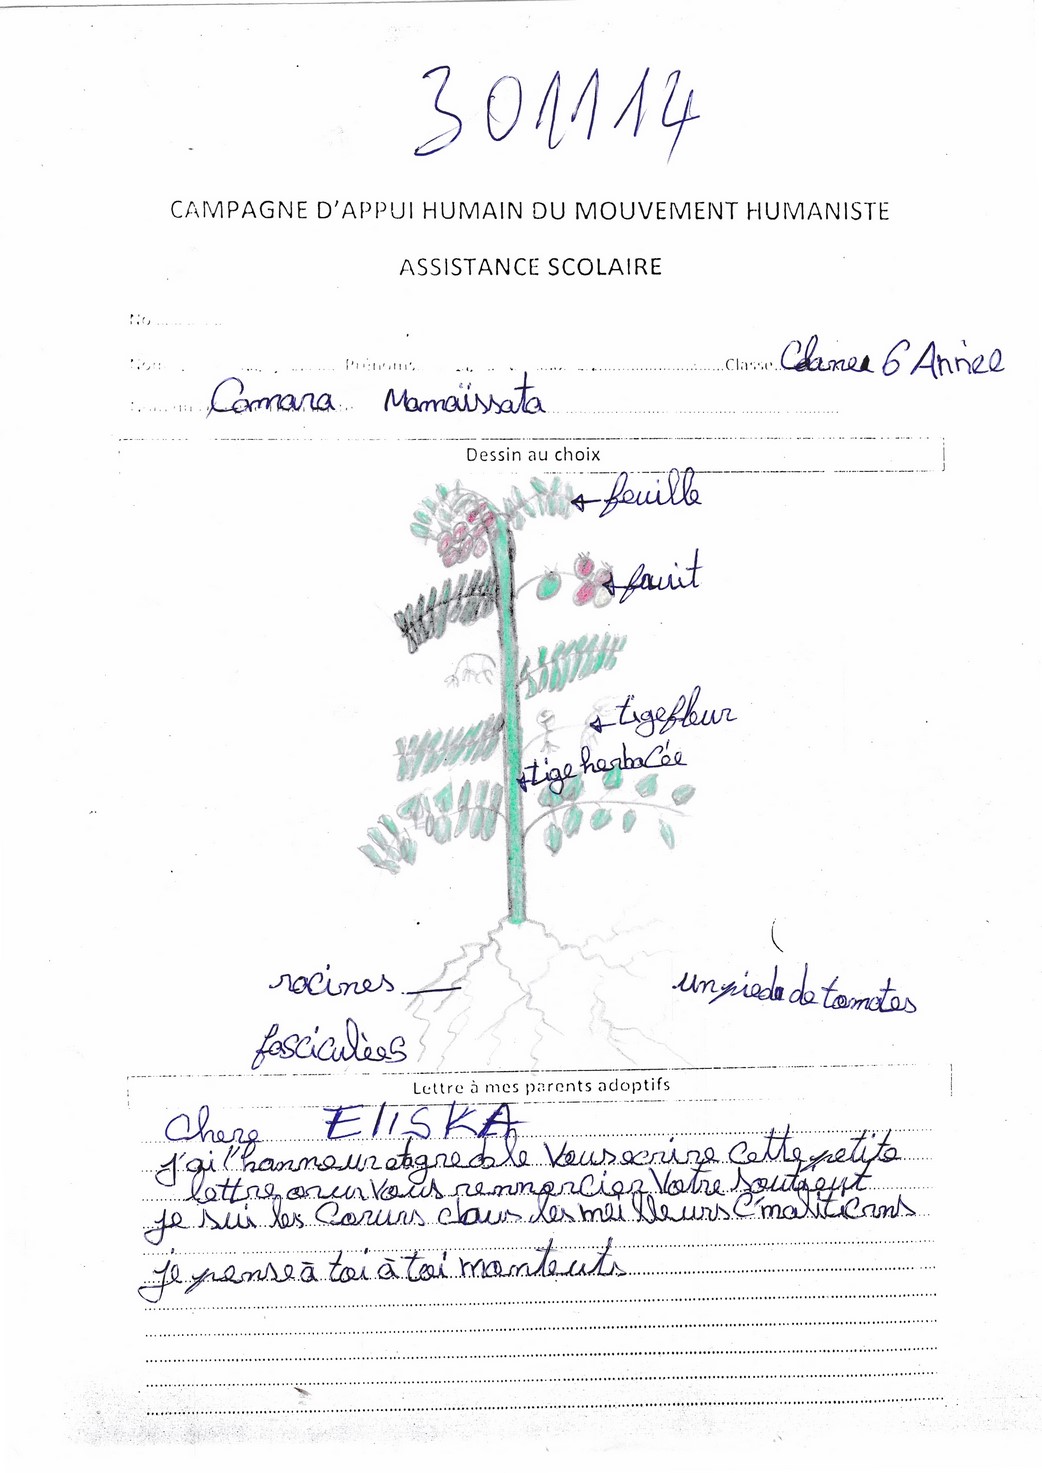 301114
CAMPAGNE D'APPUI HUMAIN DU MOUVEMENT HUMANISTE
ASSISTANCE SCOLAIRE
No
Nom Prénoms Classe 6 Année
Camara Mamaïssata
Dessin au choix
feuille
fruit
tigefleur
tige herbacée
racines
un pied de tomates
fasciculèes
Lettre à mes parents adoptifs
Chere EliSKA
j'ai l'hanneur agreable Vous ecrire cette petite
lettre Vous remmercier Votre
je suis les Cours dans les meilleurs
je pense à toi à toi